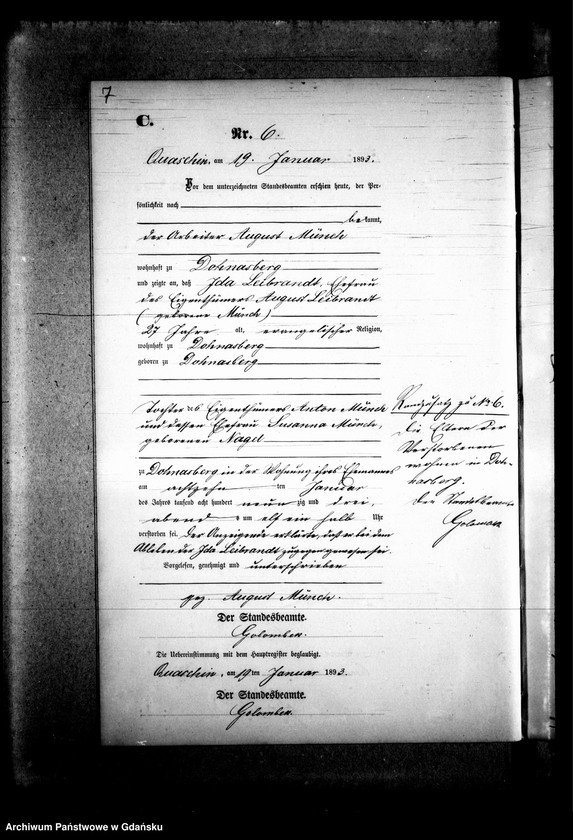 7
C.
Nr. 6.
Quaschin, am 19. Januar 1893.
Vor dem unterzeichneten Standesbeamten erschien heute, der Per-
sönlichkeit nach
bekannt,
der Arbeiter August Münch
wohnhaft zu Dohnasberg
und zeigte an, daß Ida Leibrandt, Ehefrau
des Eigenthümers August Leibrandt
(geborene Münch)
27 Jahre alt, evangelischer Religion,
wohnhaft zu Dohnasberg
geboren zu Dohnasberg
Tochter des Eigenthümers Anton Münch
und dessen Ehefrau Susanna Münch,
geborenen Nagel
zu Dohnasberg in der Wohnung ihres Ehemannes
am achtzehn ten Januar
des Jahres tausend acht hundert neun zig und drei,
abend s um elf ein halb Uhr
verstorben sei. Der Anzeigende erklärte, daß er bei dem
Ableben der Ida Leibrandt zugegen gewesen sei.
Vorgelesen, genehmigt und unterschrieben
gez. August Münch.
Der Standesbeamte.
Golombek.
Die Uebereinstimmung mit dem Hauptregister beglaubigt.
Quaschin, am 19ten Januar 1893.
Der Standesbeamte.
Golombek.
Randzusatz zu No 6.
Die Eltern der
Verstorbenen
wohnen in Doh-
nasberg.
Der Standesbeamte
Golombek
Archiwum Państwowe w Gdańsku